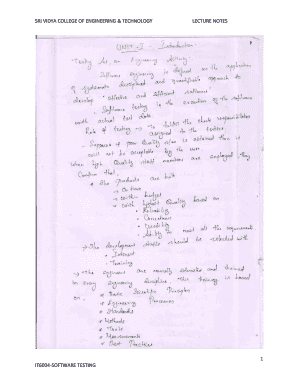 SRI VIDYA COLLEGE OF ENGINEERING & TECHNOLOGY LECTURE NOTES
UNIT - I - Introduction
Testing As An Engineering Activity:
Software Engineering is defined as the application
of systematic disciplined and quantifiable approach to
develop "effective and efficient software".
Software testing is the execution of the software
with actual test data.
Role of testing
assigned to the testers.
Suppose if poor quality is obtained then it
will not be acceptable by the user.
When high quality staff members are employed they
Confirm that,
The products are built
On time
Within budget
With highest quality based on
Reliability
Correctness
Usability
Ability to meet all the requirements.
The development staffs should be selected with
Interest
Training
The engineers are mainly educated and trained
on every engineering discipline. The training is based
on
Basic Scientific Principles
Engineering Processes
Standards
Methods
Tools
Measurements
Best Practices
1
IT6004-SOFTWARE TESTING